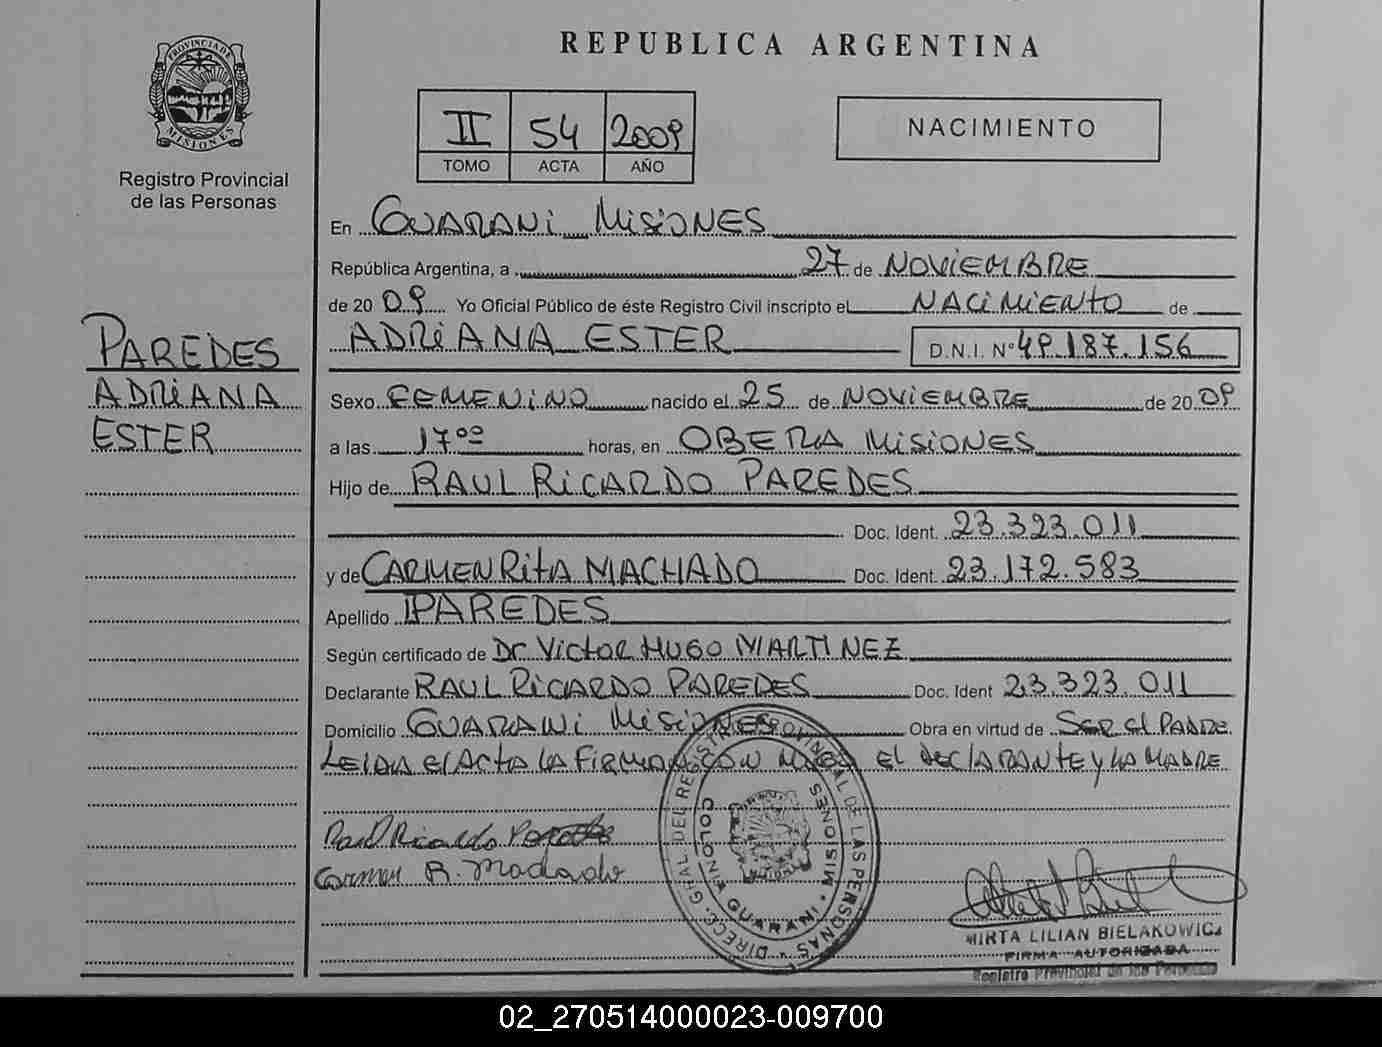 PROVINCIA DE
MISIONES
Registro Provincial
de las Personas
PAREDES
ADRIANA
ESTER
REPUBLICA ARGENTINA
II 54 2009
TOMO ACTA AÑO
NACIMIENTO
En GUARANI MISIONES
República Argentina, a 27 de NOVIEMBRE
de 20 09 Yo Oficial Público de éste Registro Civil inscripto el NACIMIENTO de
ADRIANA ESTER D.N.I. N° 49.187.156
Sexo FEMENINO nacido el 25 de NOVIEMBRE de 20 09
a las 17 00 horas, en OBERA MISIONES
Hijo de RAUL RICARDO PAREDES
Doc. Ident. 23.323.011
y de CARMEN RITA MACHADO Doc. Ident. 23.172.583
Apellido PAREDES
Según certificado de Dr VICTOR HUGO MARTINEZ
Declarante RAUL RICARDO PAREDES Doc. Ident 23.323.011
Domicilio GUARANI MISIONES Obra en virtud de SER El PADRE
LEIDA el ACTA LA FIRMAN CON EL DEClARANTE y LA MADRE
Raul Ricardo Paredes
Carmen R. Machado
DIREC. GRAL. DEL REGISTRO PROVINCIAL DE LAS PERSONAS
COLONIA GUARANI - MISIONES
MIRTA LILIAN BIELAKOWICZ
FIRMA AUTORIZADA
Registro Provincial de las Personas
02_270514000023-009700